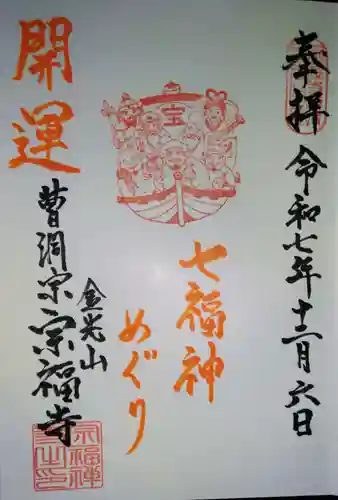 奉拝
令和七年十二月六日
宝
七福神
めぐり
開運
金光山
曹洞宗宗福寺